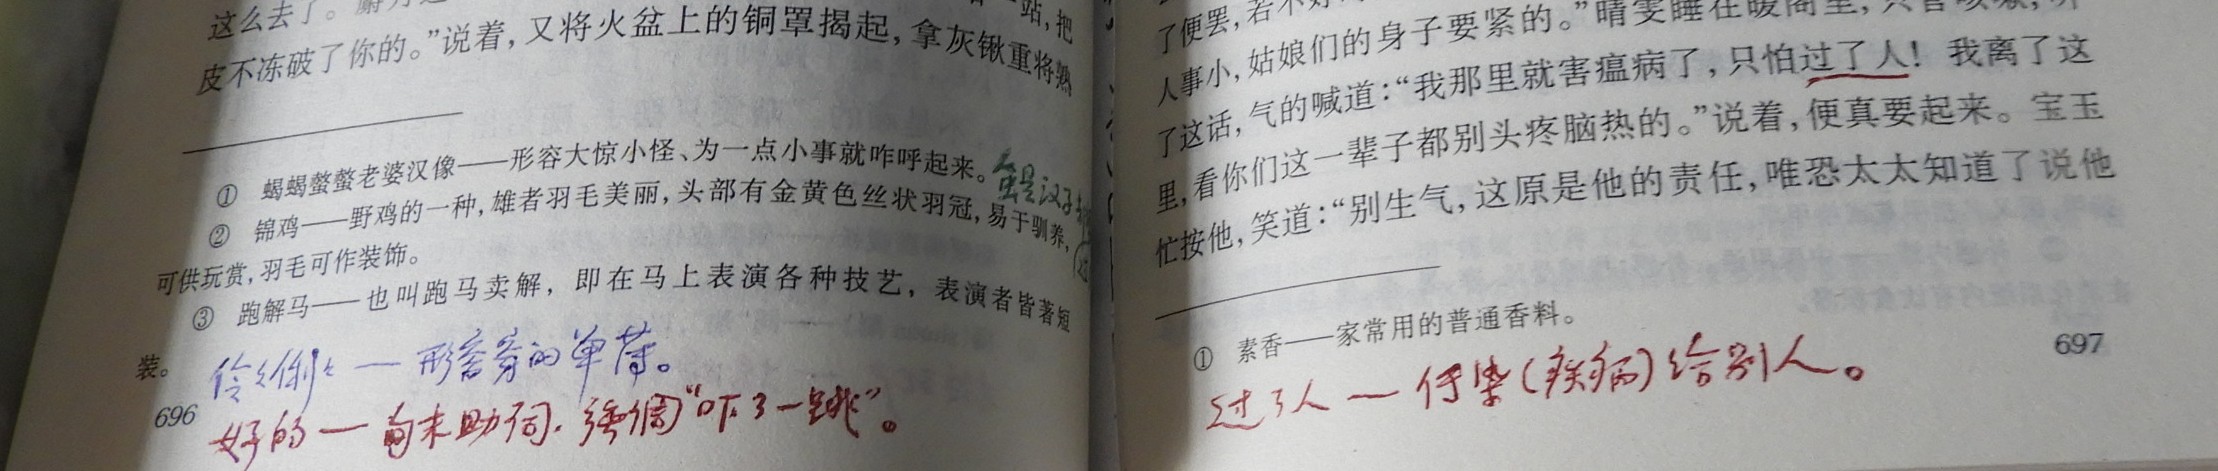 这么去了。麝月
站，把
皮不冻破了你的。”说着，又将火盆上的铜罩揭起，拿灰锹重将熟
① 蝎蝎螫螫老婆汉像——形容大惊小怪、为一点小事就咋呼起来。
② 锦鸡——野鸡的一种，雄者羽毛美丽，头部有金黄色丝状羽冠，易于驯养，
可供玩赏，羽毛可作装饰。
③ 跑解马——也叫跑马卖解，即在马上表演各种技艺，表演者皆著短
装。
伶々俐々—形容穿的单薄。
好的—句末助词，强调“吓了一跳”。
696
了便罢，若不好
人事小，姑娘们的身子要紧的。”晴雯睡在暖阁里，只管咳嗽，听
了这话，气的喊道：“我那里就害瘟病了，只怕过了人！我离了这
里，看你们这一辈子都别头疼脑热的。”说着，便真要起来。宝玉
忙按他，笑道：“别生气，这原是他的责任，唯恐太太知道了说他
① 素香——家常用的普通香料。
过了人—传染（疾病）给别人。
697